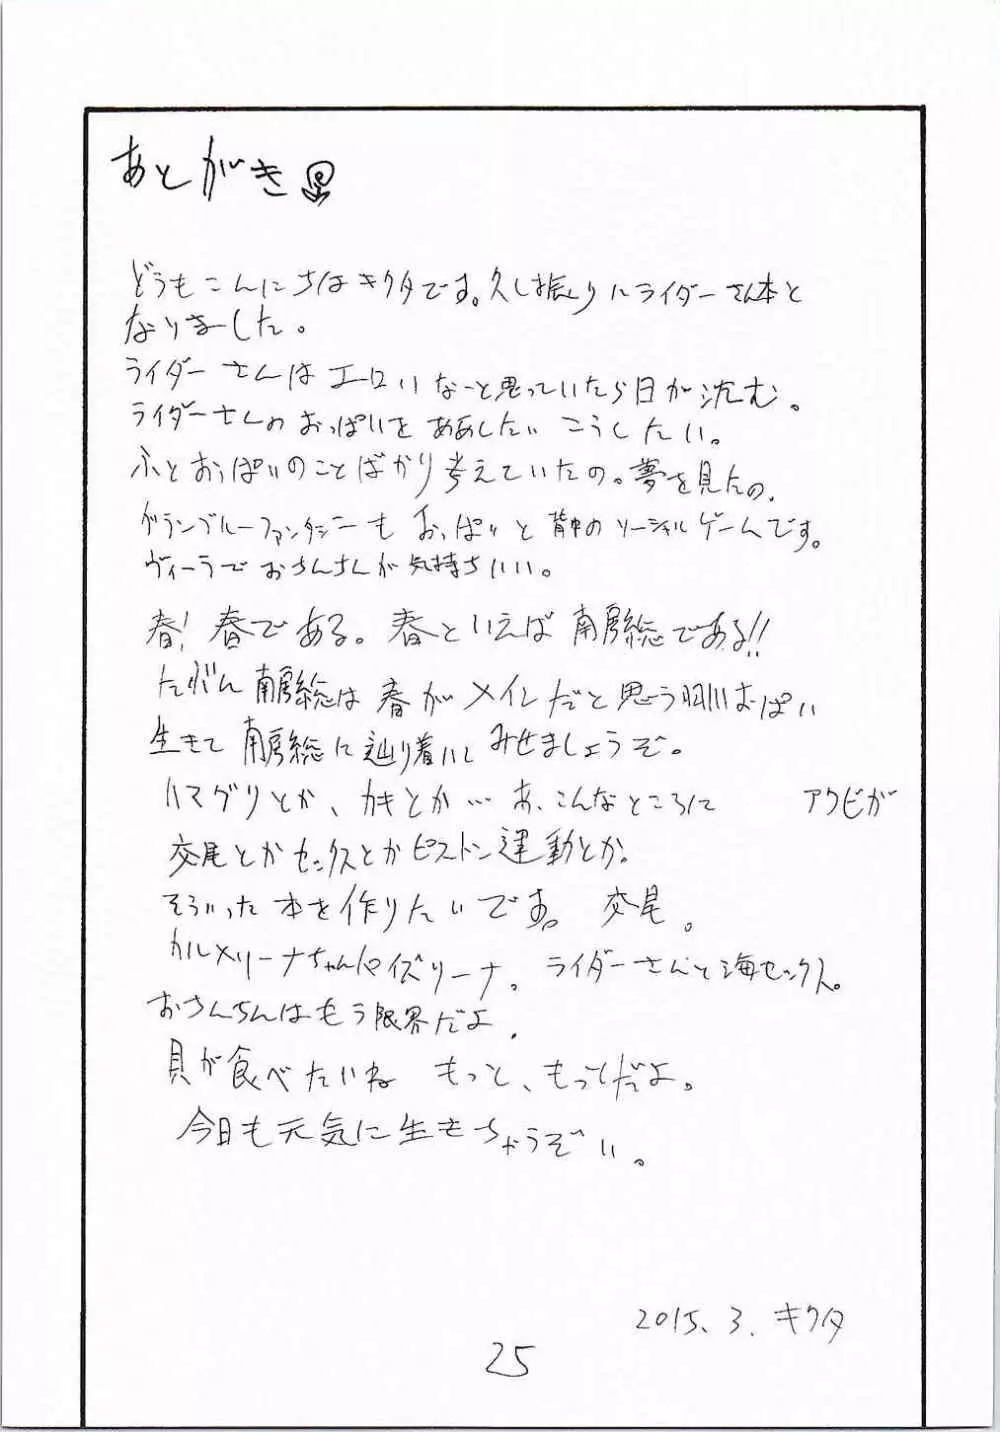 あとがき
どうもこんにちはキクタです。久し振りにライダーさん本と
なりました。
ライダーさんはエロいなーと思っていたら日が沈む。
ライダーさんのおっぱいをああしたいこうしたい。
ふとおっぱいのことばかり考えていたの。夢を見たの。
グランブルーファンタジーもおっぱいと背中のソーシャルゲームです。
ヴィーラでおちんちんが気持ちいい。
春!春である。春といえば南房総である!!
たぶん南房総は春がメインだと思う羽川おっぱい
生きて南房総に辿り着いてみせましょうぞ。
ハマグリとか、カキとか…あ、こんなところに アワビが
交尾とかセックスとかピストン運動とか。
そういった本を作りたいです。交尾。
カルメリーナちゃんパイズリーナ。ライダーさんと海セックス。
おちんちんはもう限界だよ。
貝が食べたいね もっと、もっとだよ。
今日も元気に生きちゃうぞい。
2015.3.キクタ
25